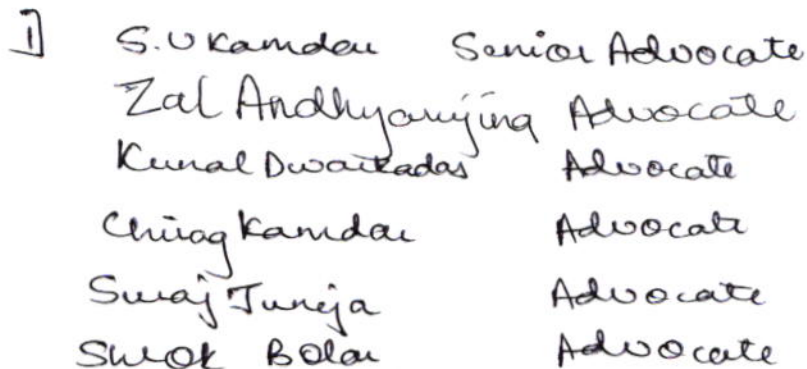 1] S.U Kamdar Senior Advocate
Zal Andhyarujina Advocate
Kunal Dwarkadas Advocate
Chirag Kamdar Advocate
Suraj Juneja Advocate
Advocate